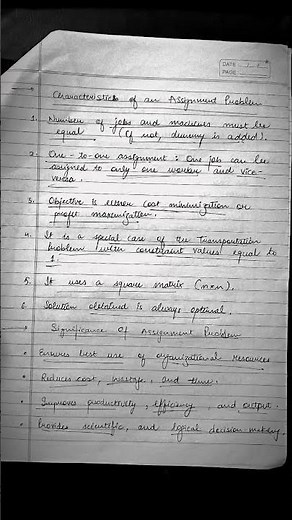 DATE
PAGE
Characteristics of an Assignment Problem
1. Number of jobs and machines must be
equal (If not, dummy is added).
2. One-to-one assignment: One job can be
assigned to only one worker and vice-
versa.
3. Objective is either cost minimization or
profit maximization.
4. It is a special case of the Transportation
Problem with constraint values equal to
1.
5. It uses a square matrix (n×n).
6. Solution obtained is always optimal.
Significance of Assignment Problem
• Ensures best use of organizational resources
• Reduces cost, wastage, and time.
• Improves productivity, efficiency, and output.
• Provides scientific, and logical decision-making.